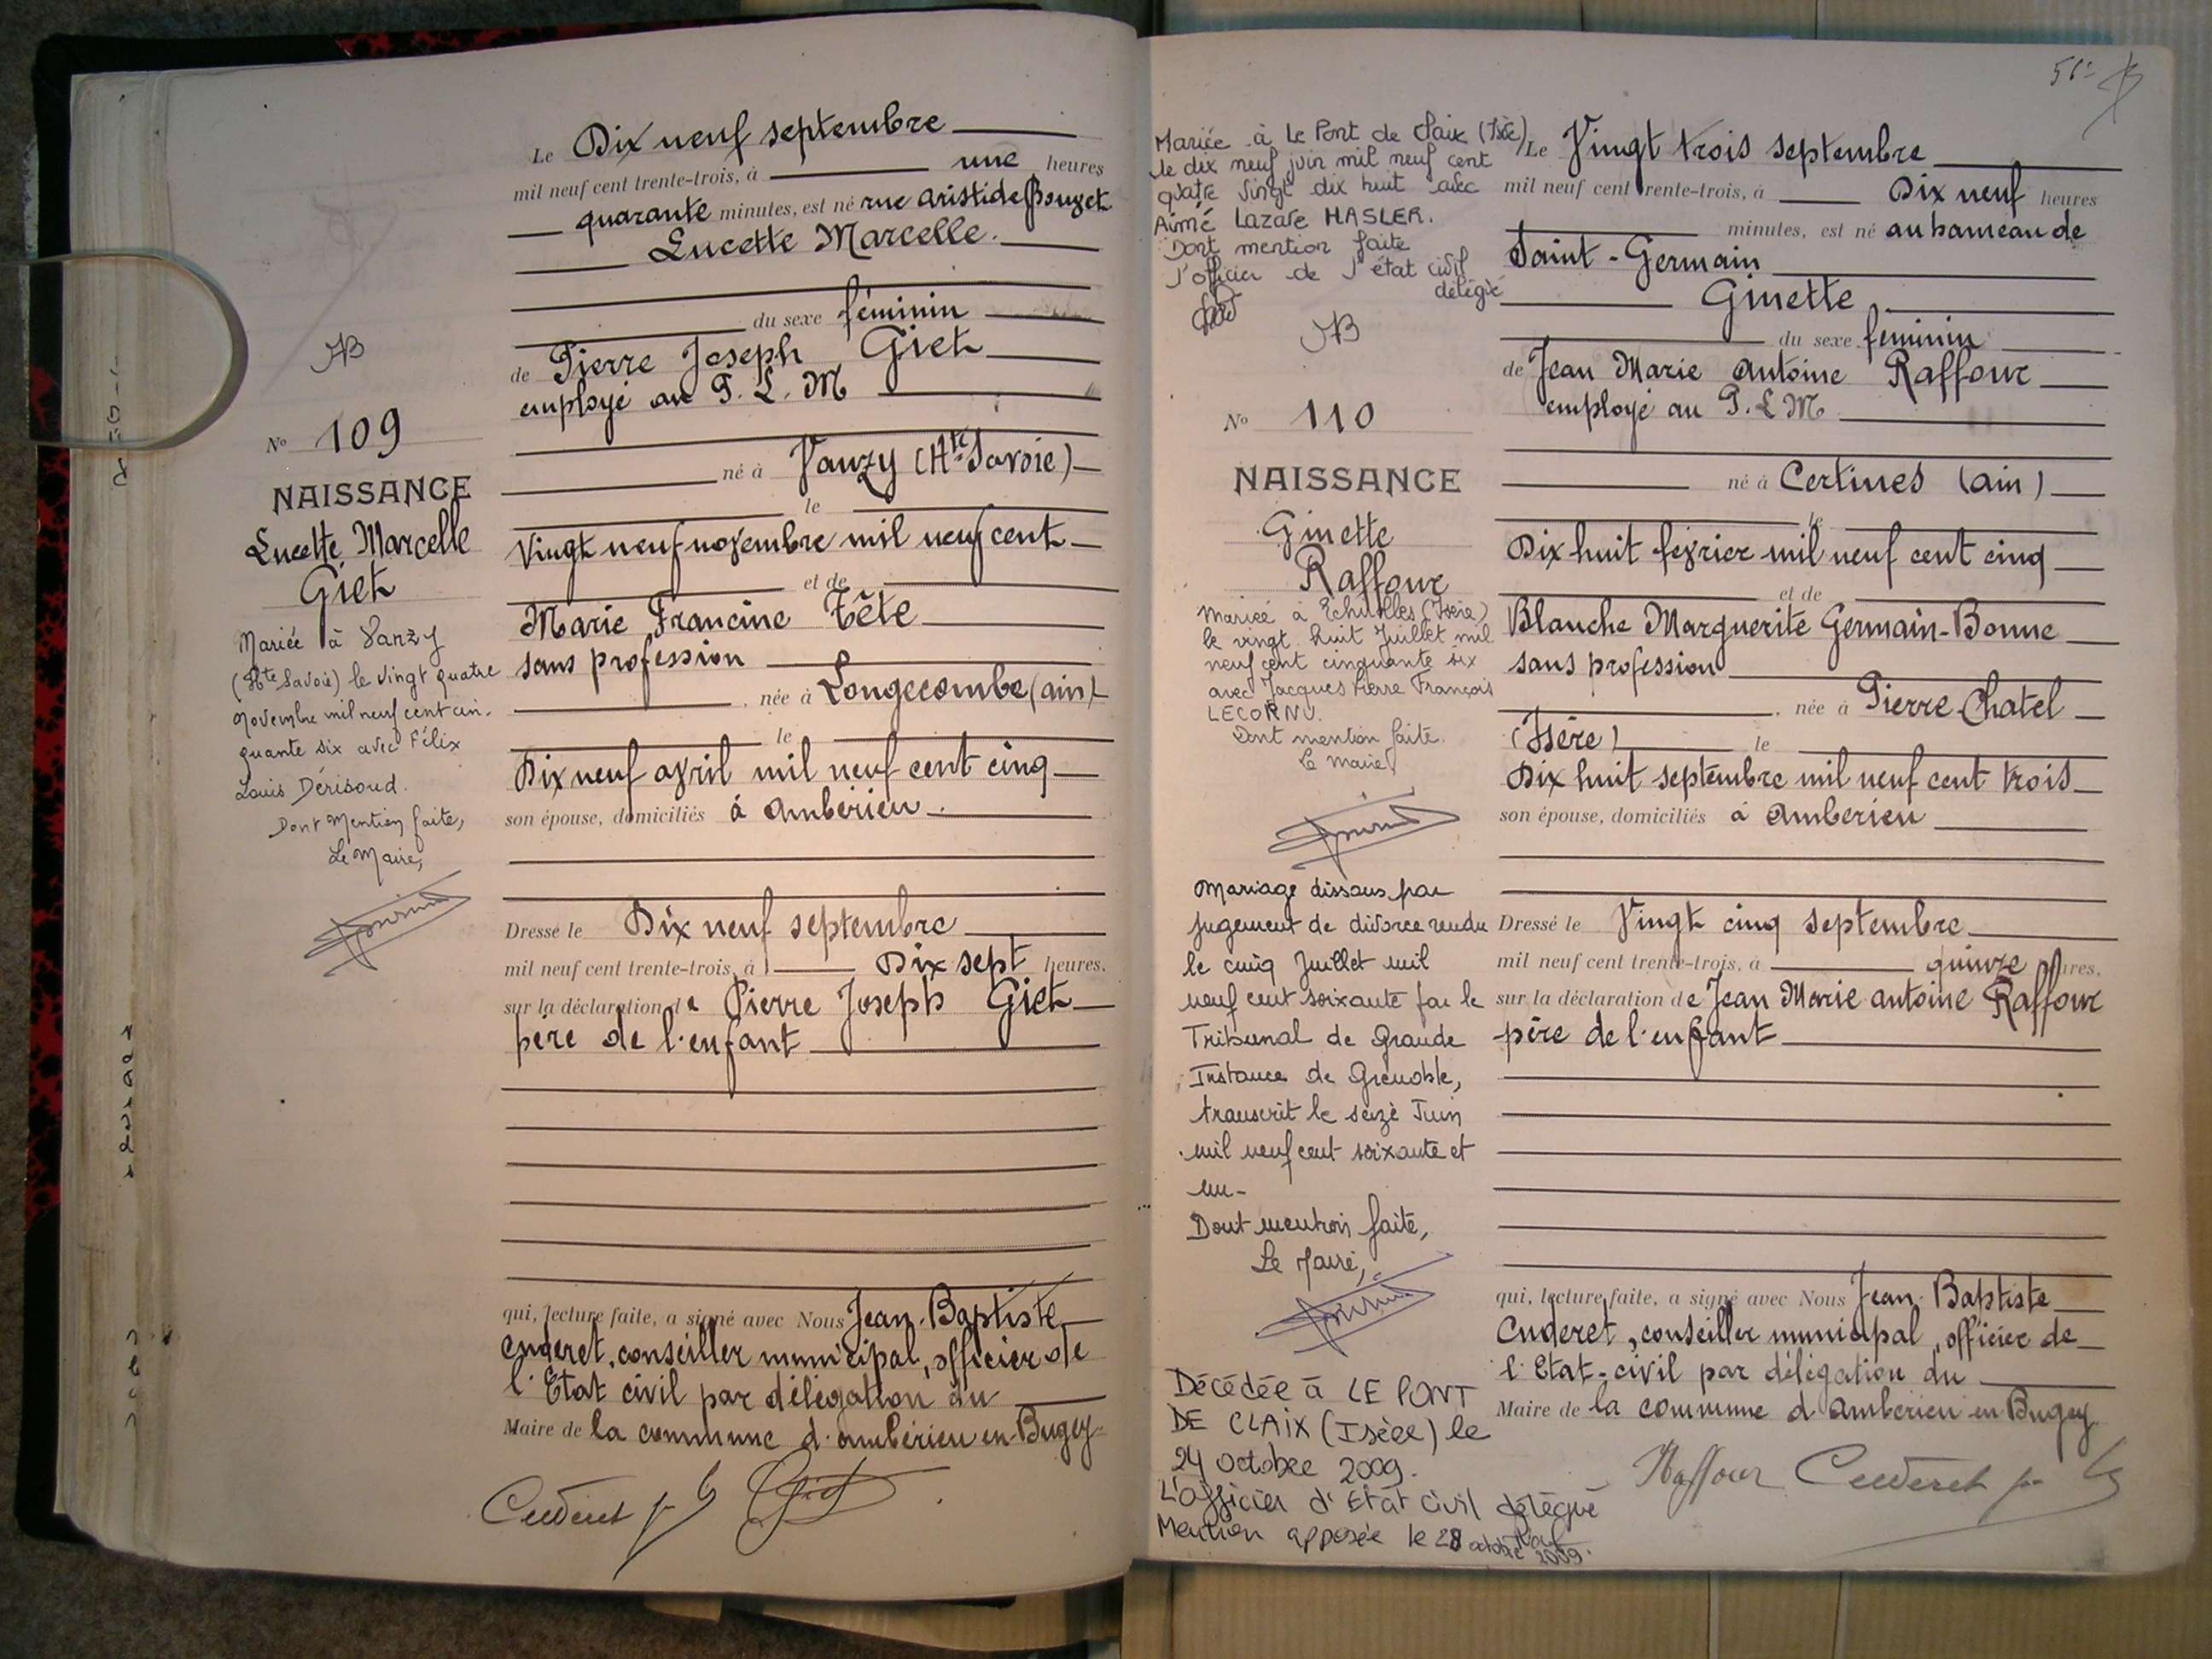 Le Dix neuf septembre
mil neuf cent trente-trois, à une heures
quarante minutes, est né rue Aristide Bouget
Lucette Marcelle.
du sexe féminin
de Pierre Joseph Giet
employé au P. L. M
né à Vanzy (Hte Savoie)
le
Vingt neuf novembre mil neuf cent
et de
Marie Francine Tête
sans profession
, née à Longecombe (ain)
le
Dix neuf avril mil neuf cent cinq
son épouse, domiciliés à Ambérieu.
Dressé le Dix neuf septembre
mil neuf cent trente-trois, à Dix sept heures.
sur la déclaration de Pierre Joseph Giet
père de l'enfant
qui, lecture faite, a signé avec Nous Jean-Baptiste
Cuderet, conseiller municipal, officier de
l'Etat civil par délégation du
Maire de la commune d'ambérieu en Bugey
Cuderet
Giet
NB
No 109
NAISSANCE
Lucette Marcelle
Giet
Mariée à Vanzy
(Hte Savoie) le vingt quatre
Novembre mil neuf cent cin-
quante six avec Félix
Louis Dérisoud.
Dont Mention faite,
Le Maire,
51
Mariée à Le Pont de Claix (Isère)
le dix neuf juin mil neuf cent
quatre vingt dix huit avec
Aimé Lazare HASLER.
Dont mention faite
l'officier de l'état civil
délégué
NB
No 110
NAISSANCE
Ginette
Raffour
Mariée à Echirolles (Isère)
le vingt huit Juillet mil
neuf cent cinquante six
avec Jacques Pierre François
LECORNU.
Dont mention faite.
Le maire,
Mariage dissous par
jugement de divorce rendu
le cinq Juillet mil
neuf cent soixante par le
Tribunal de Grande
Instance de Grenoble,
transcrit le seize Juin
mil neuf cent soixante et
un-
Dont mention faite,
Le Maire,
Décédée à LE PONT
DE CLAIX (Isère) le
24 octobre 2009.
L'officier d'Etat civil délégué
Mention apposée le 28 octobre 2009.
Le Vingt trois septembre
mil neuf cent trente-trois, à Dix neuf heures
minutes, est né au hameau de
Saint-Germain
Ginette
du sexe féminin
de Jean Marie Antoine Raffour
employé au P. L M
né à Certines (ain)
le
Dix huit février mil neuf cent cinq
et de
Blanche Marguerite Germain-Bonne
sans profession
, née à Pierre-Chatel
(Isère) le
Dix huit septembre mil neuf cent trois
son épouse, domiciliés à Ambérieu
Dressé le Vingt cinq septembre
mil neuf cent trente-trois, à quinze heures.
sur la déclaration de Jean Marie antoine Raffour
père de l'enfant
qui, lecture faite, a signé avec Nous Jean-Baptiste
Cuderet, conseiller municipal, officier de
l'Etat-civil par délégation du
Maire de la commune d'Ambérieu en Bugey
Raffour Cuderet